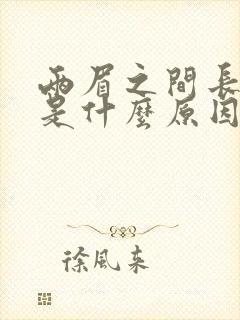 兩眉之間長
是什麼原因
徐風來